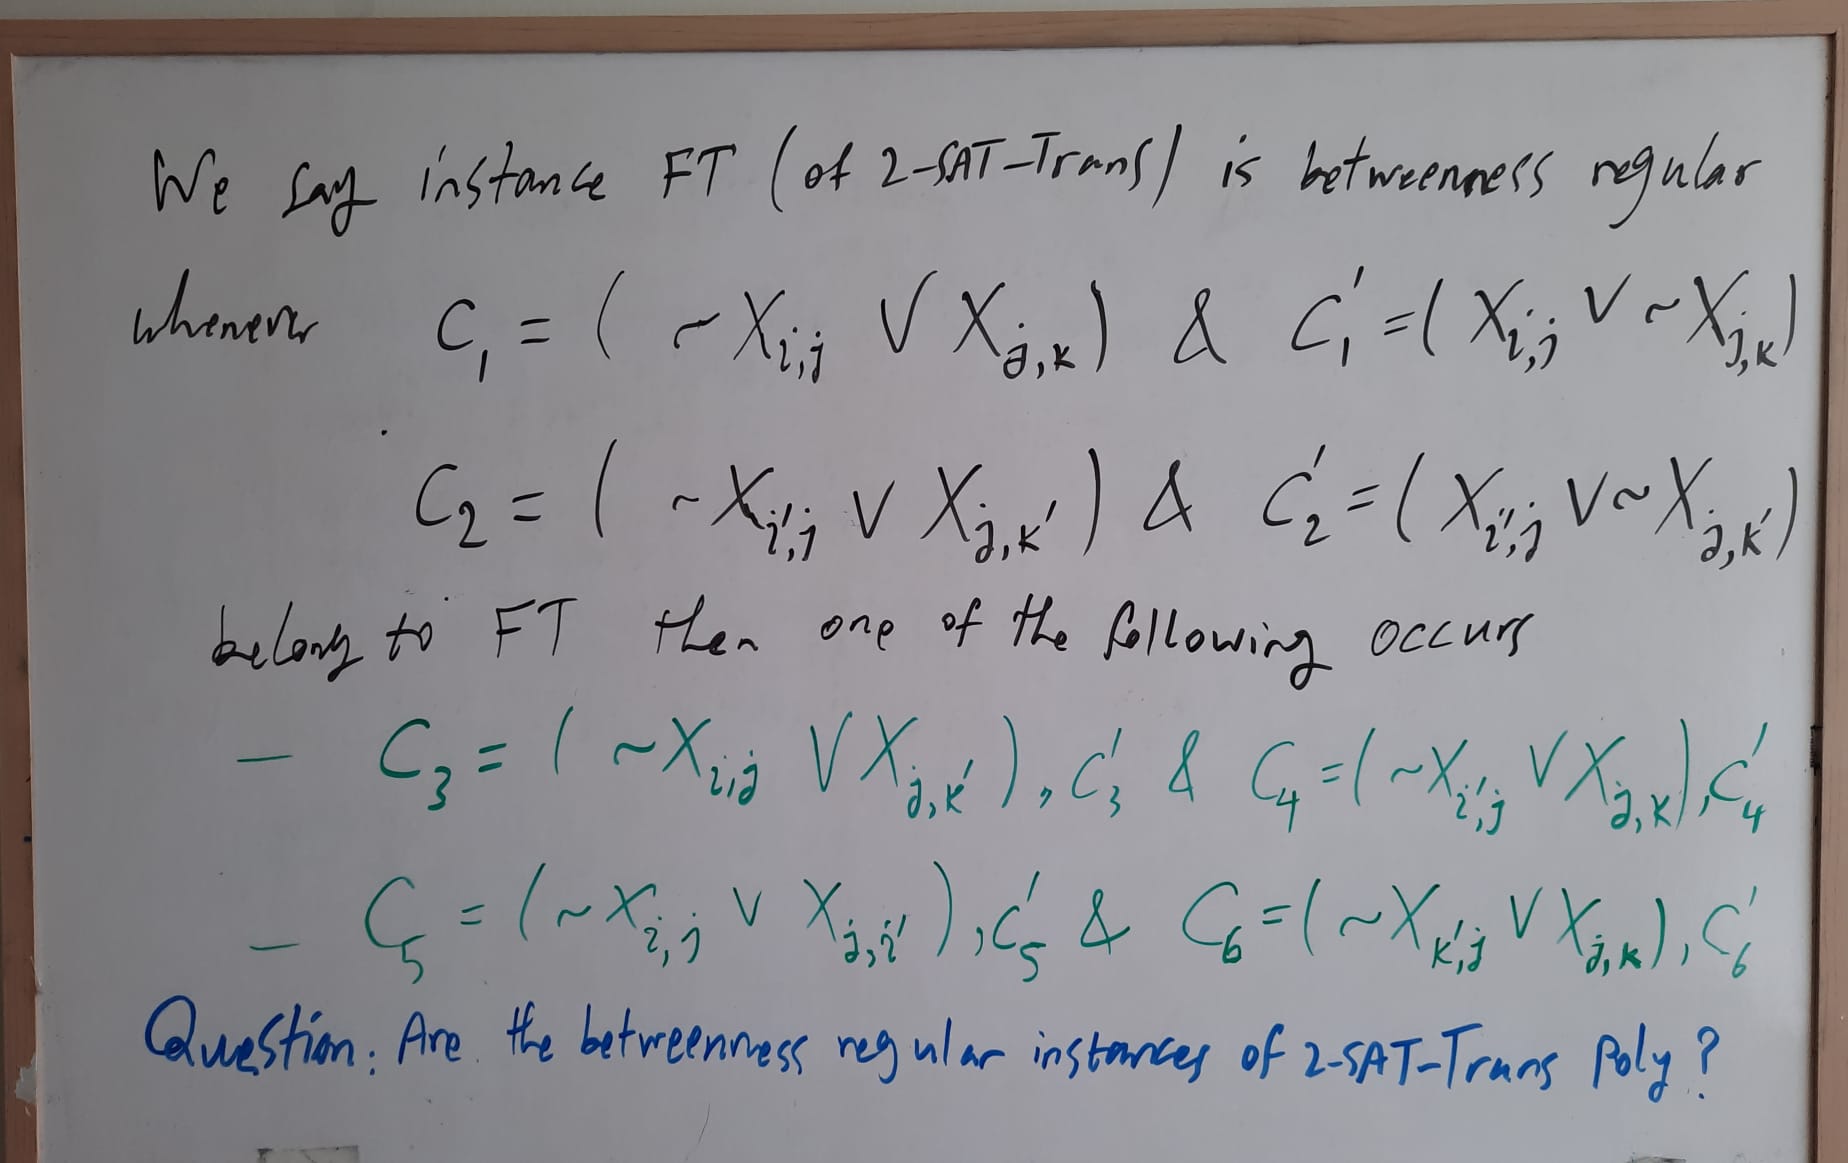 We say instance FT (of 2-SAT-Trans) is betweenness regular
whenever C₁ = ( ~X_{i,j} ∨ X_{j,k} ) & C₁' = ( X_{i,j} ∨ ~X_{j,k} )
C₂ = ( ~X_{i',j} ∨ X_{j,k'} ) & C₂' = ( X_{i',j} ∨ ~X_{j,k'} )
belong to FT then one of the following occurs
— C₃ = ( ~X_{i,j} ∨ X_{j,k'} ), C₃' & C₄ = ( ~X_{i',j} ∨ X_{j,k} ), C₄'
— C₅ = ( ~X_{i,j} ∨ X_{j,i'} ), C₅' & C₆ = ( ~X_{k',j} ∨ X_{j,k} ), C₆'
Question: Are the betweenness regular instances of 2-SAT-Trans Poly?